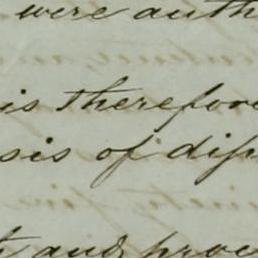 were auth
is therefore
sis of dip
and proc